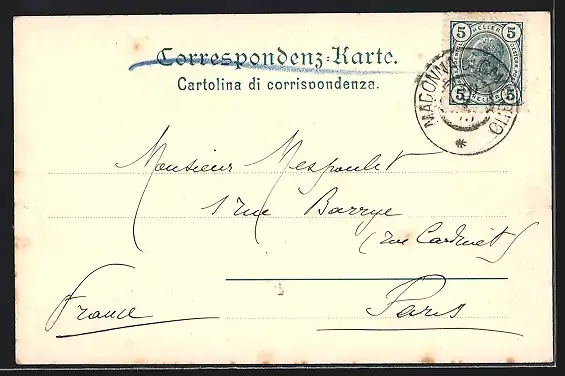 Correspondenz-Karte.
Cartolina di corrispondenza.
5 5
HELLER HELLER
5 5
MADONNA
Monsieur Mespoulet
1 rue Barrye
(rue Cardinet)
France
Paris